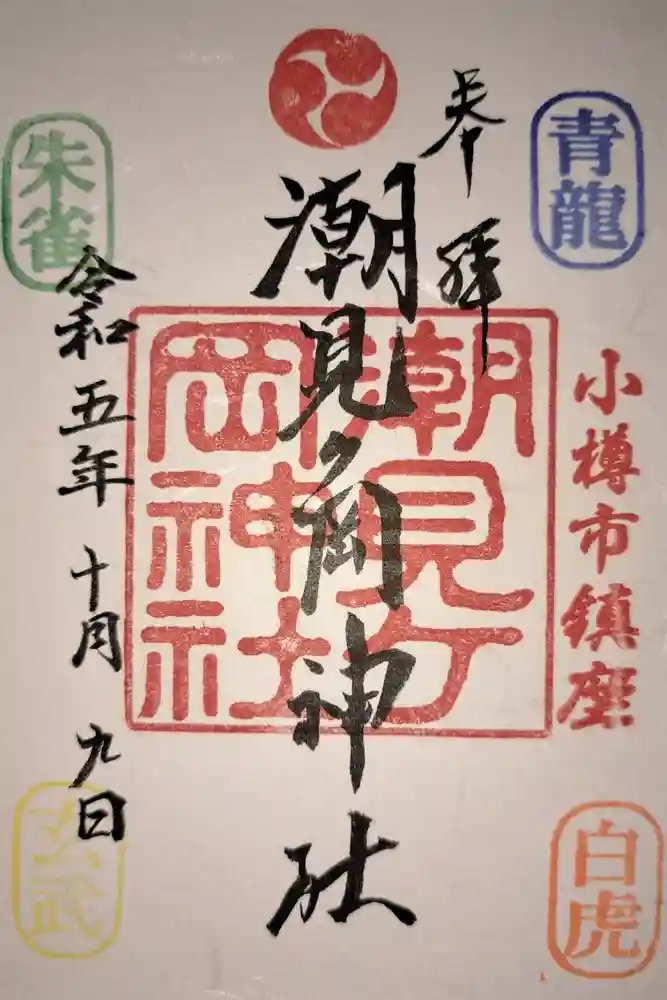 青龍
奉拝
小樽市鎮座
潮見ケ岡神社
潮見ケ岡神社
朱雀
令和五年十月九日
白虎
玄武